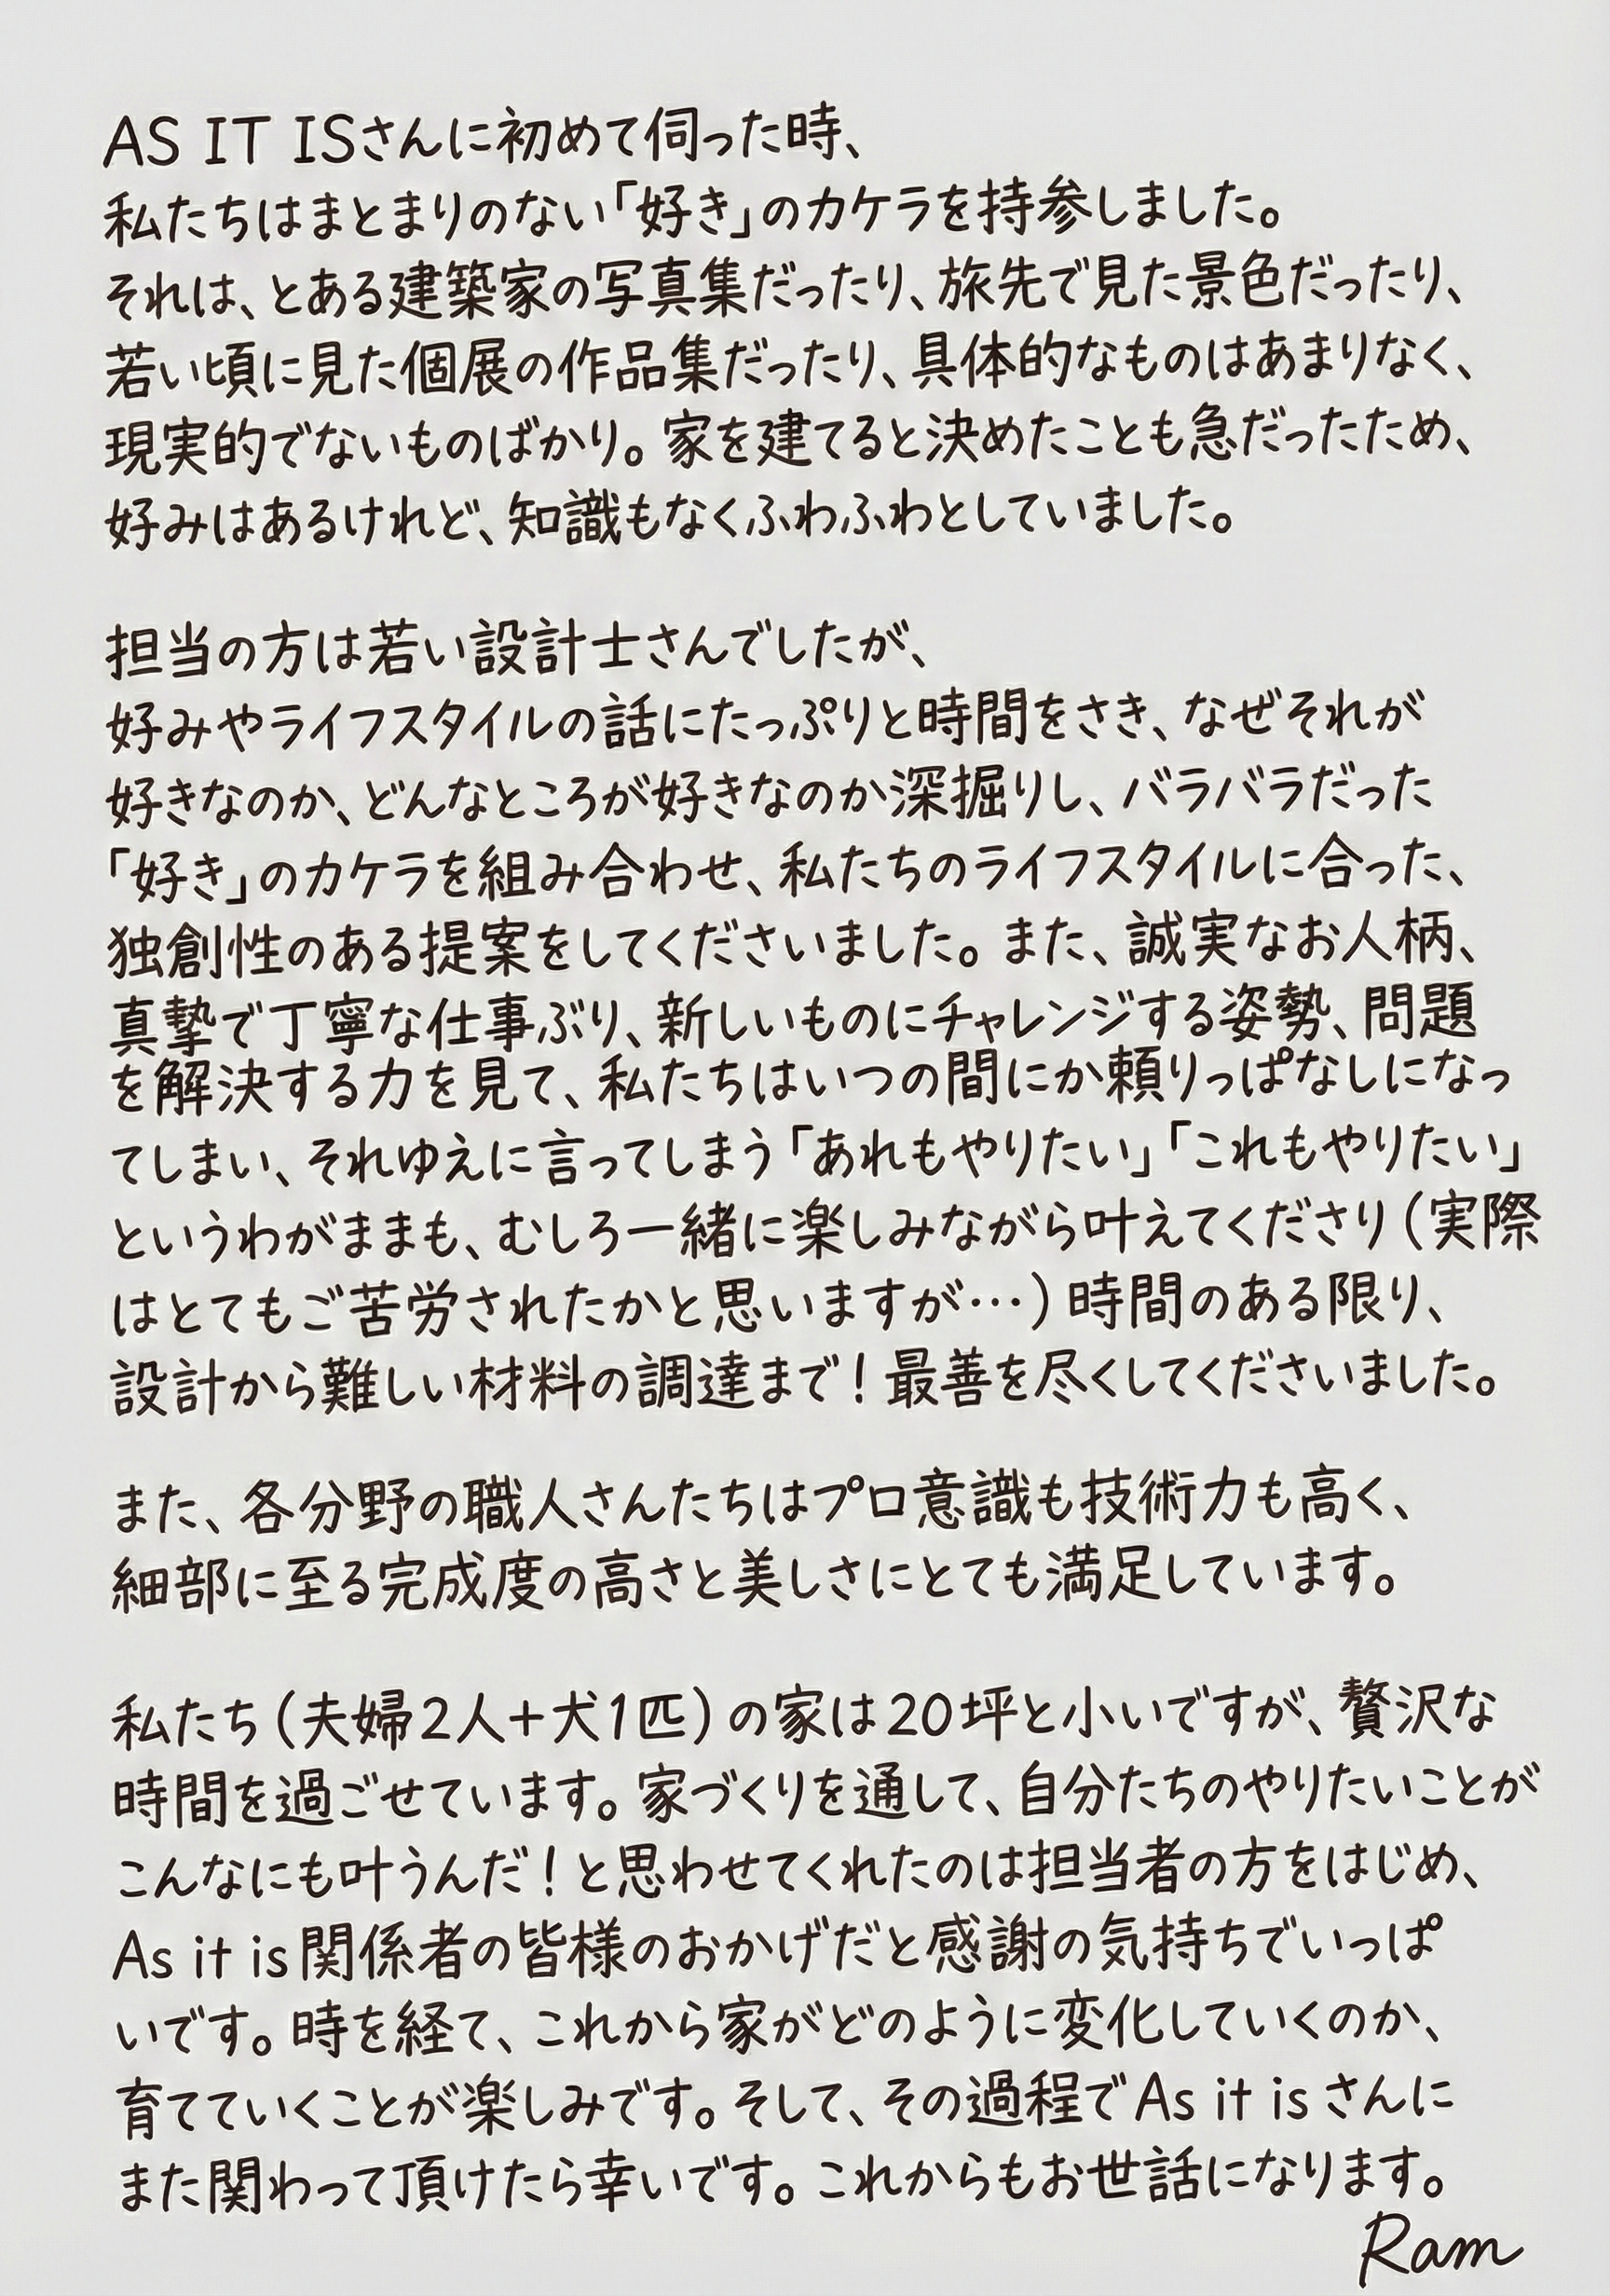 AS IT ISさんに初めて伺った時、
私たちはまとまりのない「好き」のカケラを持参しました。
それは、とある建築家の写真集だったり、旅先で見た景色だったり、
若い頃に見た個展の作品集だったり、具体的なものはあまりなく、
現実的でないものばかり。家を建てると決めたことも急だったため、
好みはあるけれど、知識もなくふわふわとしていました。
担当の方は若い設計士さんでしたが、
好みやライフスタイルの話にたっぷりと時間をさき、なぜそれが
好きなのか、どんなところが好きなのか深掘りし、バラバラだった
「好き」のカケラを組み合わせ、私たちのライフスタイルに合った、
独創性のある提案をしてくださいました。また、誠実なお人柄、
真摯で丁寧な仕事ぶり、新しいものにチャレンジする姿勢、問題
を解決する力を見て、私たちはいつの間にか頼りっぱなしになっ
てしまい、それゆえに言ってしまう「あれもやりたい」「これもやりたい」
というわがままも、むしろ一緒に楽しみながら叶えてくださり(実際
はとてもご苦労されたかと思いますが…)時間のある限り、
設計から難しい材料の調達まで!最善を尽くしてくださいました。
また、各分野の職人さんたちはプロ意識も技術力も高く、
細部に至る完成度の高さと美しさにとても満足しています。
私たち(夫婦2人+犬1匹)の家は20坪と小いですが、贅沢な
時間を過ごせています。家づくりを通して、自分たちのやりたいことが
こんなにも叶うんだ!と思わせてくれたのは担当者の方をはじめ、
As it is関係者の皆様のおかげだと感謝の気持ちでいっぱ
いです。時を経て、これから家がどのように変化していくのか、
育てていくことが楽しみです。そして、その過程でAs it isさんに
また関わって頂けたら幸いです。これからもお世話になります。
Ram